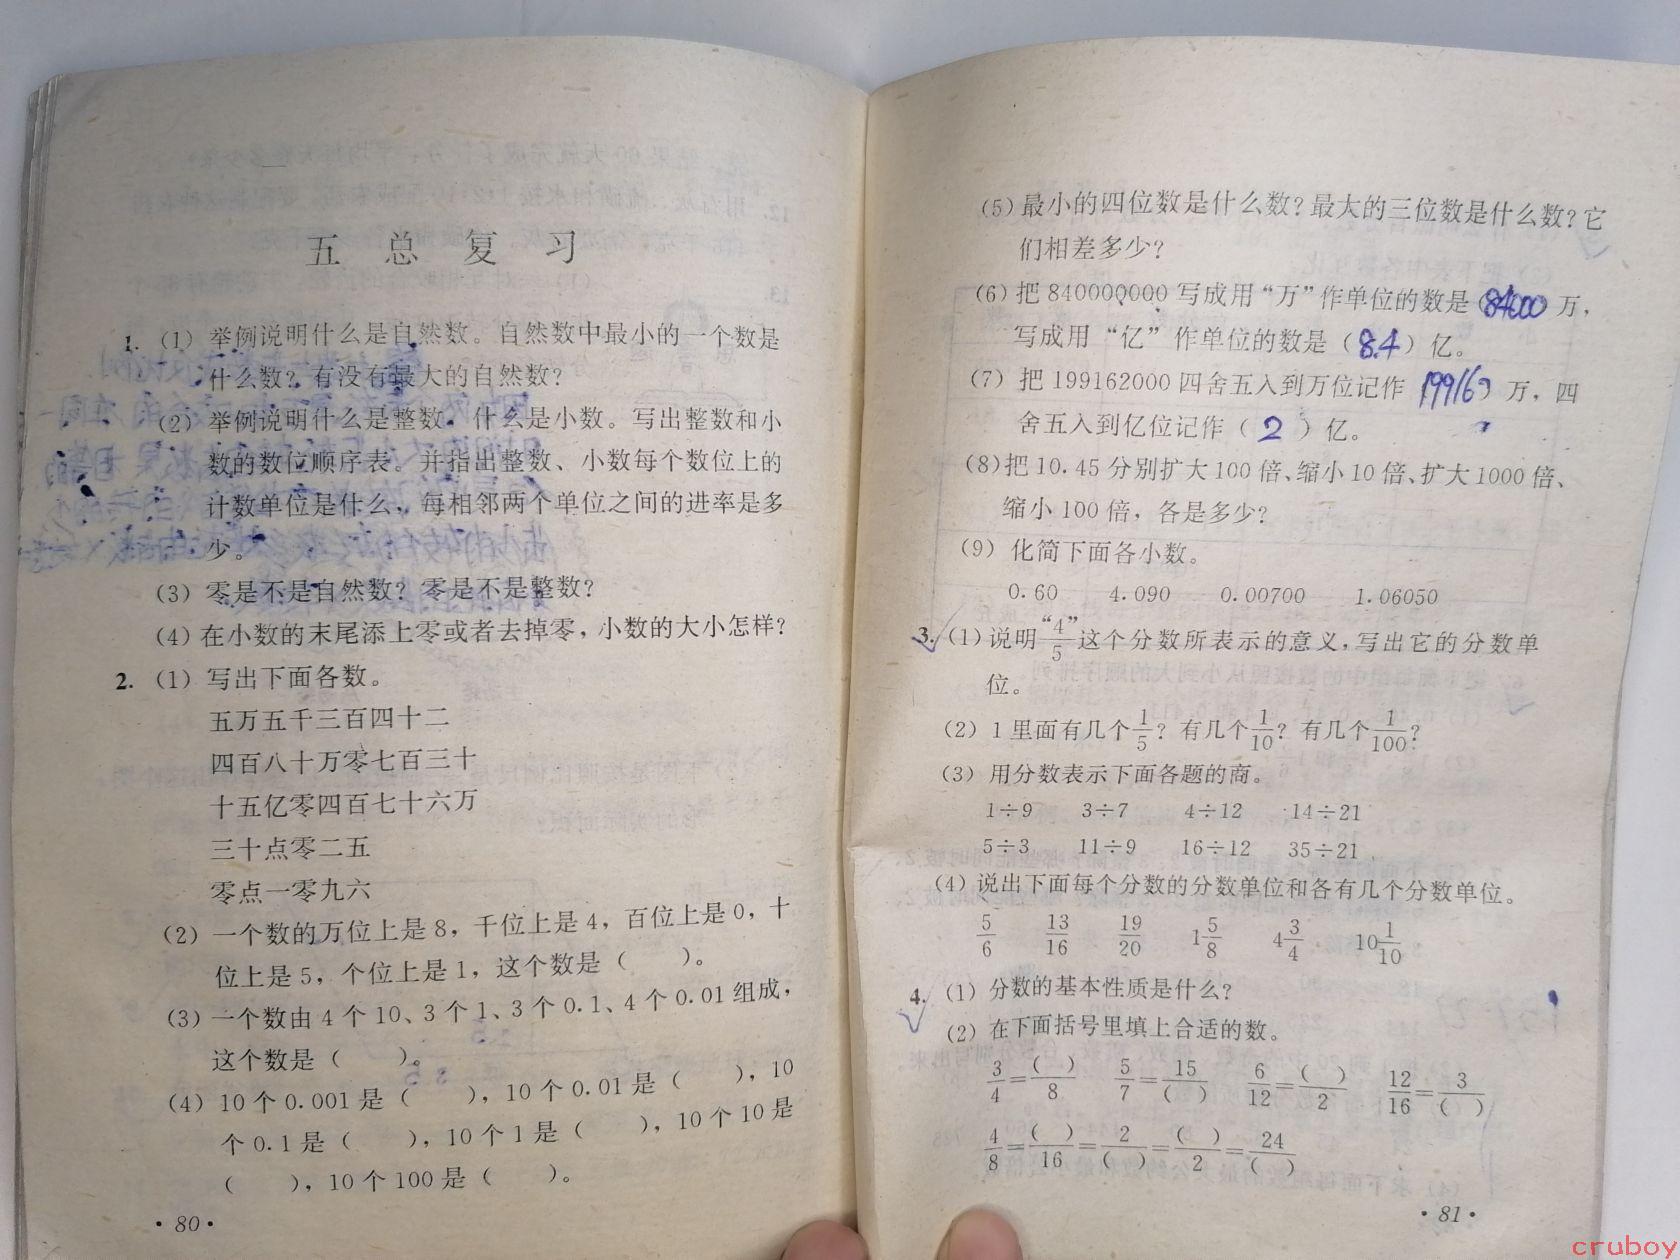 五 总 复 习
1. (1) 举例说明什么是自然数。自然数中最小的一个数是
什么数？有没有最大的自然数？
(2) 举例说明什么是整数。什么是小数。写出整数和小
数的数位顺序表。并指出整数、小数每个数位上的
计数单位是什么，每相邻两个单位之间的进率是多
少。
(3) 零是不是自然数？零是不是整数？
(4) 在小数的末尾添上零或者去掉零，小数的大小怎样？
2. (1) 写出下面各数。
五万五千三百四十二
四百八十万零七百三十
十五亿零四百七十六万
三十点零二五
零点一零九六
(2) 一个数的万位上是8，千位上是4，百位上是0，十
位上是5，个位上是1，这个数是（ ）。
(3) 一个数由4个10、3个1、3个0.1、4个0.01组成，
这个数是（ ）。
(4) 10个0.001是（ ），10个0.01是（ ），10
个0.1是（ ），10个1是（ ），10个10是
（ ），10个100是（ ）。
·80·
(5) 最小的四位数是什么数？最大的三位数是什么数？它
们相差多少？
(6) 把840000000写成用“万”作单位的数是（84000）万，
写成用“亿”作单位的数是（8.4）亿。
(7) 把199162000四舍五入到万位记作 19916 万，四
舍五入到亿位记作（2）亿。
(8) 把10.45分别扩大100倍、缩小10倍、扩大1000倍、
缩小100倍，各是多少？
(9) 化简下面各小数。
0.60 4.090 0.00700 1.06050
3. (1) 说明“4/5”这个分数所表示的意义，写出它的分数单
位。
(2) 1里面有几个1/5？有几个1/10？有几个1/100？
(3) 用分数表示下面各题的商。
1÷9 3÷7 4÷12 14÷21
5÷3 11÷9 16÷12 35÷21
(4) 说出下面每个分数的分数单位和各有几个分数单位。
5/6 13/16 19/20 1 5/8 4 3/4 10 1/10
4. (1) 分数的基本性质是什么？
(2) 在下面括号里填上合适的数。
3/4=( )/8 5/7=15/( ) 6/12=( )/2 12/16=3/( )
4/8=( )/16=2/( )=( )/2=24/( )
·81·
cruboy